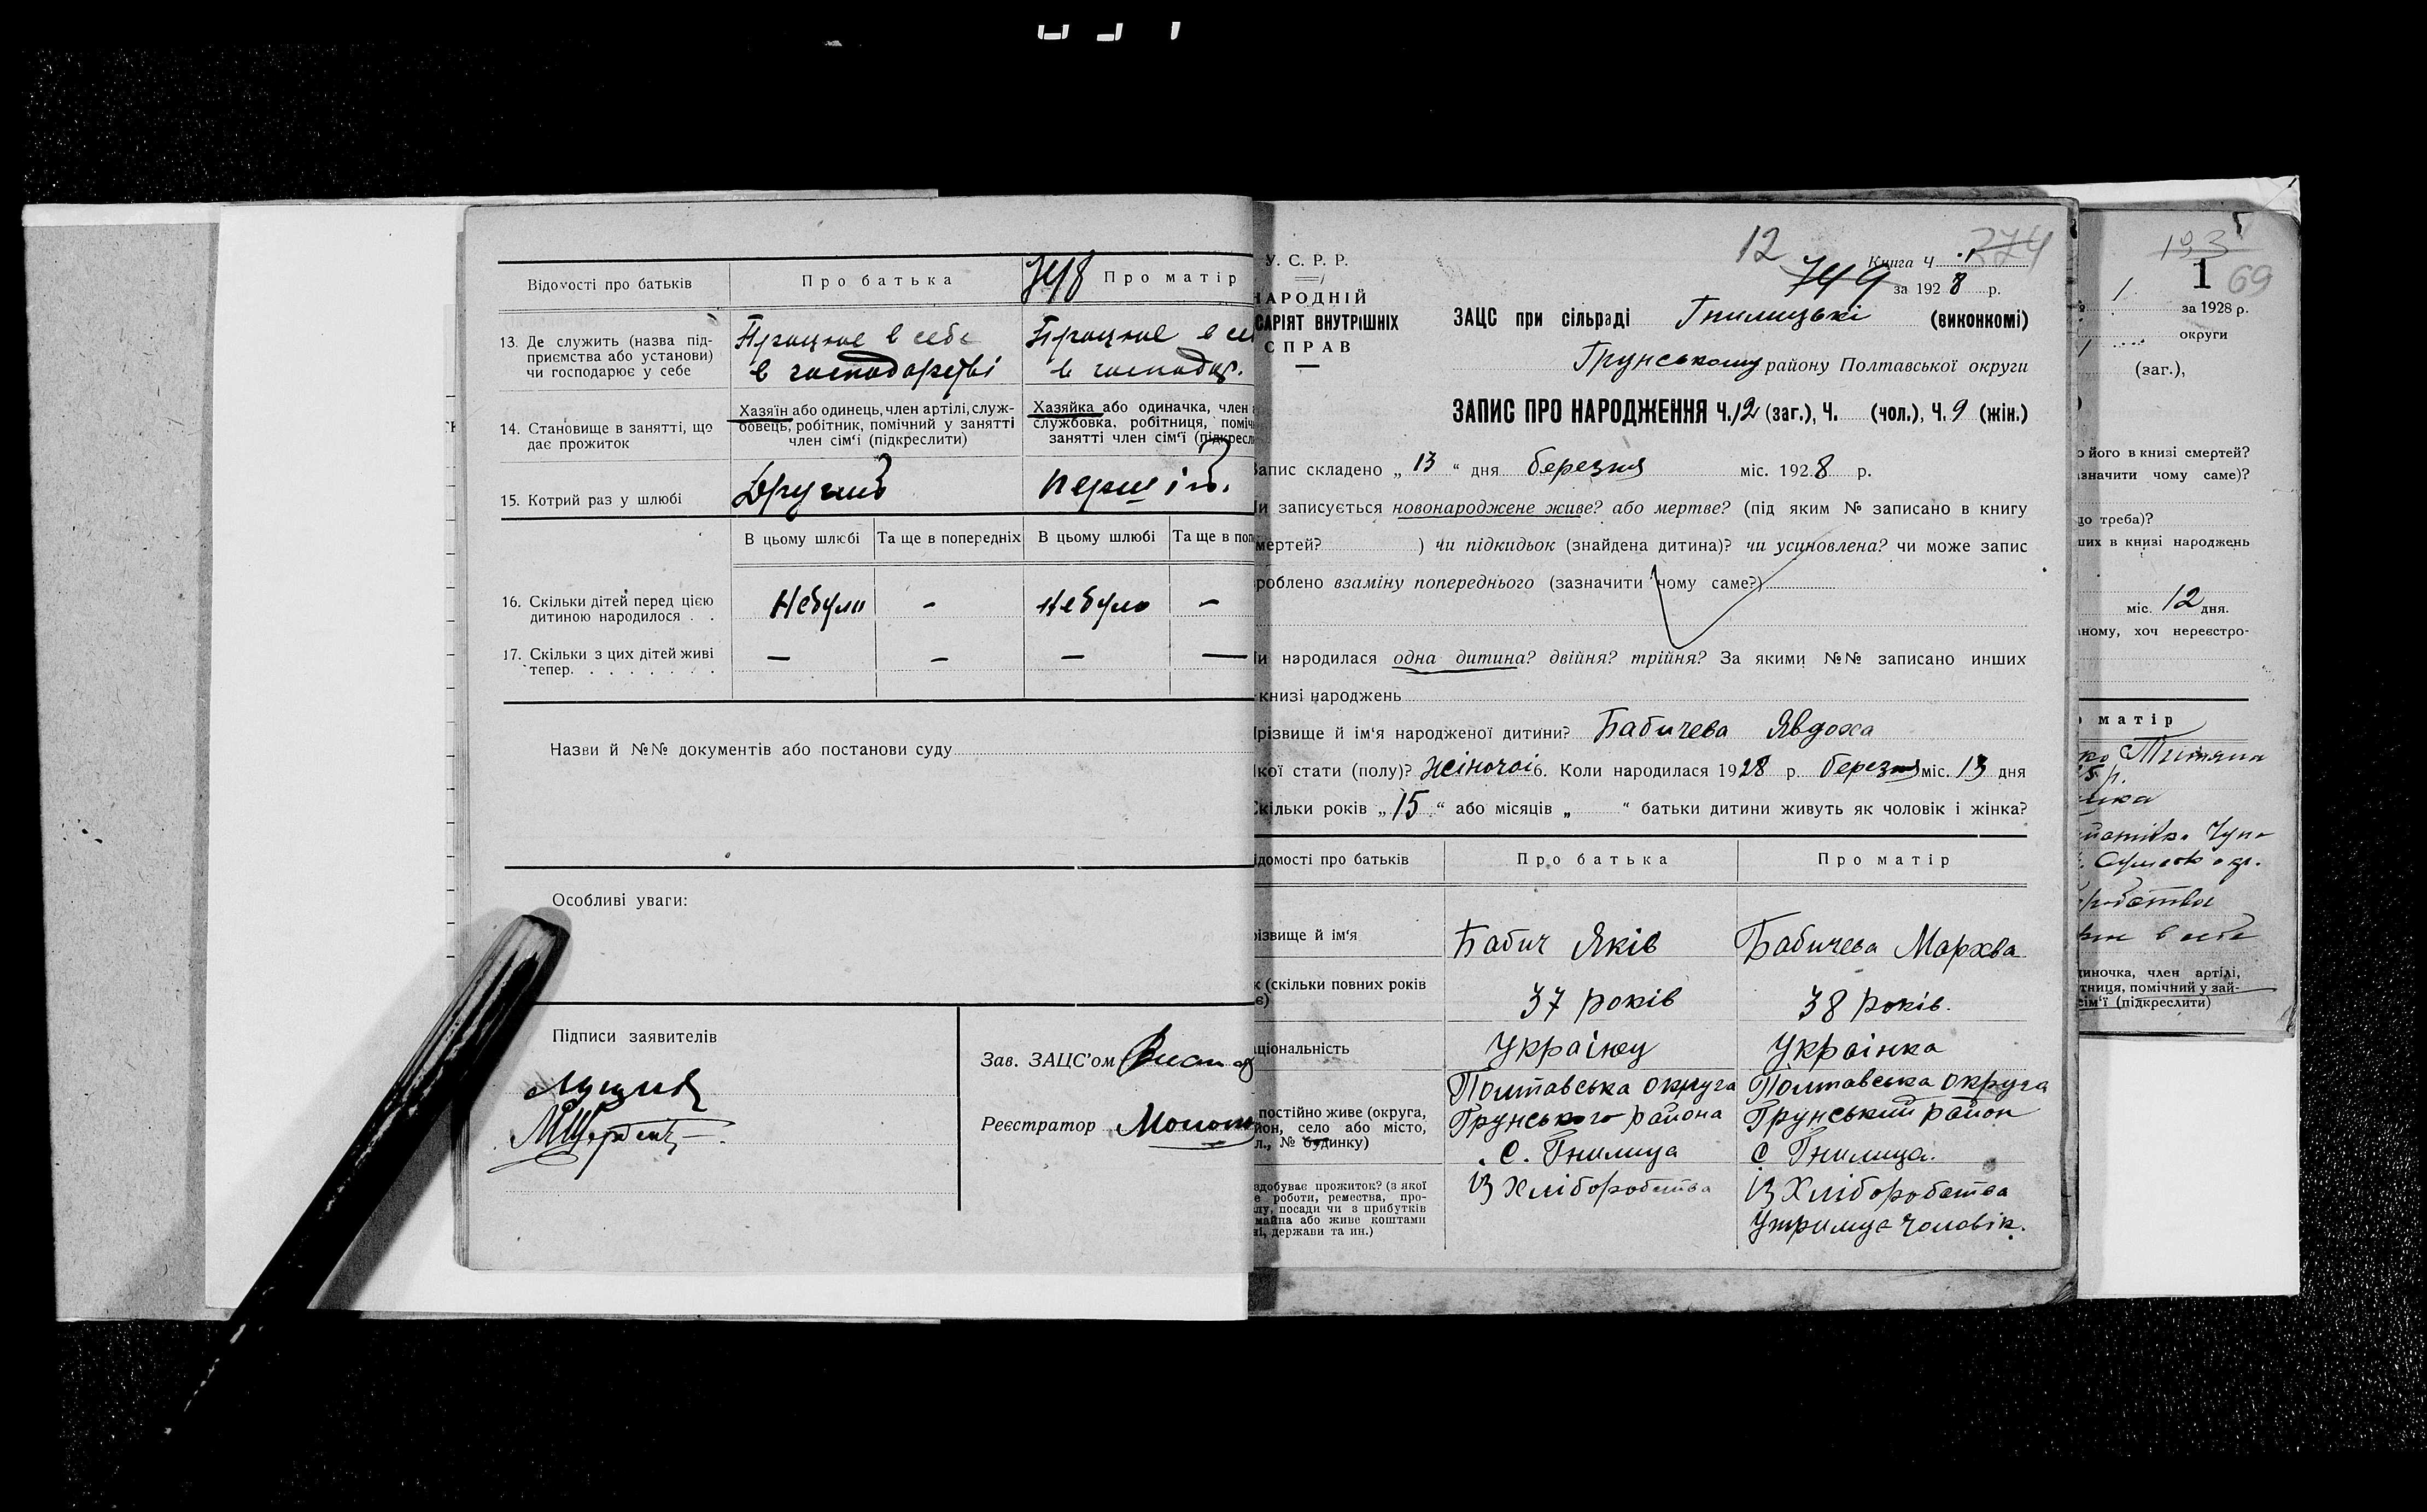 Відомості про батьків
Про батька
748 Про матір
13. Де служить (назва під-
приємства або установи)
чи господарює у себе
Працює в себе
в господарстві
Працює в се
в господар.
14. Становище в занятті, що
дає прожиток
Хазяїн або одинець, член артілі, служ-
бовець, робітник, помічний у занятті
член сім'ї (підкреслити)
Хазяйка або одиначка, член
службовка, робітниця, поміч
занятті член сім'ї (підкресл
15. Котрий раз у шлюбі
Другий
перший.
В цьому шлюбі
Та ще в попередніх
В цьому шлюбі
Та ще в поп
16. Скільки дітей перед цією
дитиною народилося . .
Небуло
-
небуло
-
17. Скільки з цих дітей живі
тепер. . . . . . . .
-
-
-
-
Назви й №№ документів або постанови суду
Особливі уваги:
Підписи заявителів
Зав. ЗАЦС'ом
Реєстратор
12
274
У. С. Р. Р.
Книга Ч. 1
749 за 1928 р.
НАРОДНІЙ
САРІЯТ ВНУТРІШНІХ
СПРАВ
ЗАЦС при сільраді Гнилицькі (виконкомі)
Грунському району Полтавської округи
ЗАПИС ПРО НАРОДЖЕННЯ Ч. 12 (заг.), Ч. (чол.), Ч. 9 (жін.)
Запис складено „ 13 “ дня березня міс. 1928 р.
и записується новонароджене живе? або мертве? (під яким № записано в книгу
мертей? ) чи підкидьок (знайдена дитина)? чи усиновлена? чи може запис
роблено взаміну попереднього (зазначити чому саме?)
и народилася одна дитина? двійня? трійня? За якими №№ записано инших
книзі народжень
різвище й ім'я народженої дитини? Бабичева Явдоха
кої стати (полу)? жіночої 6. Коли народилася 1928 р. березня міс. 13 дня
кільки років „ 15 “ або місяців „ “ батьки дитини живуть як чоловік і жінка?
ідомості про батьків
Про батька
Про матір
ізвище й ім'я
Бабич Яків
Бабичева Мархва
к (скільки повних років
є)
37 років
38 років.
ціональність
Українец
Українка
постійно живе (округа,
йон, село або місто,
л., № будинку)
Полтавська округа
Грунського района
с. Гнилица
Полтавська округа
Грунський район
с Гнилица.
здобуває прожиток? (з якої
е роботи, ремества, про-
лу, посади чи з прибутків
майна або живе коштами
ні, держави та ин.)
із Хліборобства
із Хліборобства
Утримує чоловік.
193
1
69
1
за 1928 р.
округи
(заг.),
о його в книзі смертей?
значити чому саме)?
що треба)?
ших в книзі народжень
міс. 12 дня.
ному, хоч нереєстро-
матір
ко Тетяна
5 р.
нка
диночка, член артілі,
тниця, помічний у зай-
сім'ї (підкреслити)